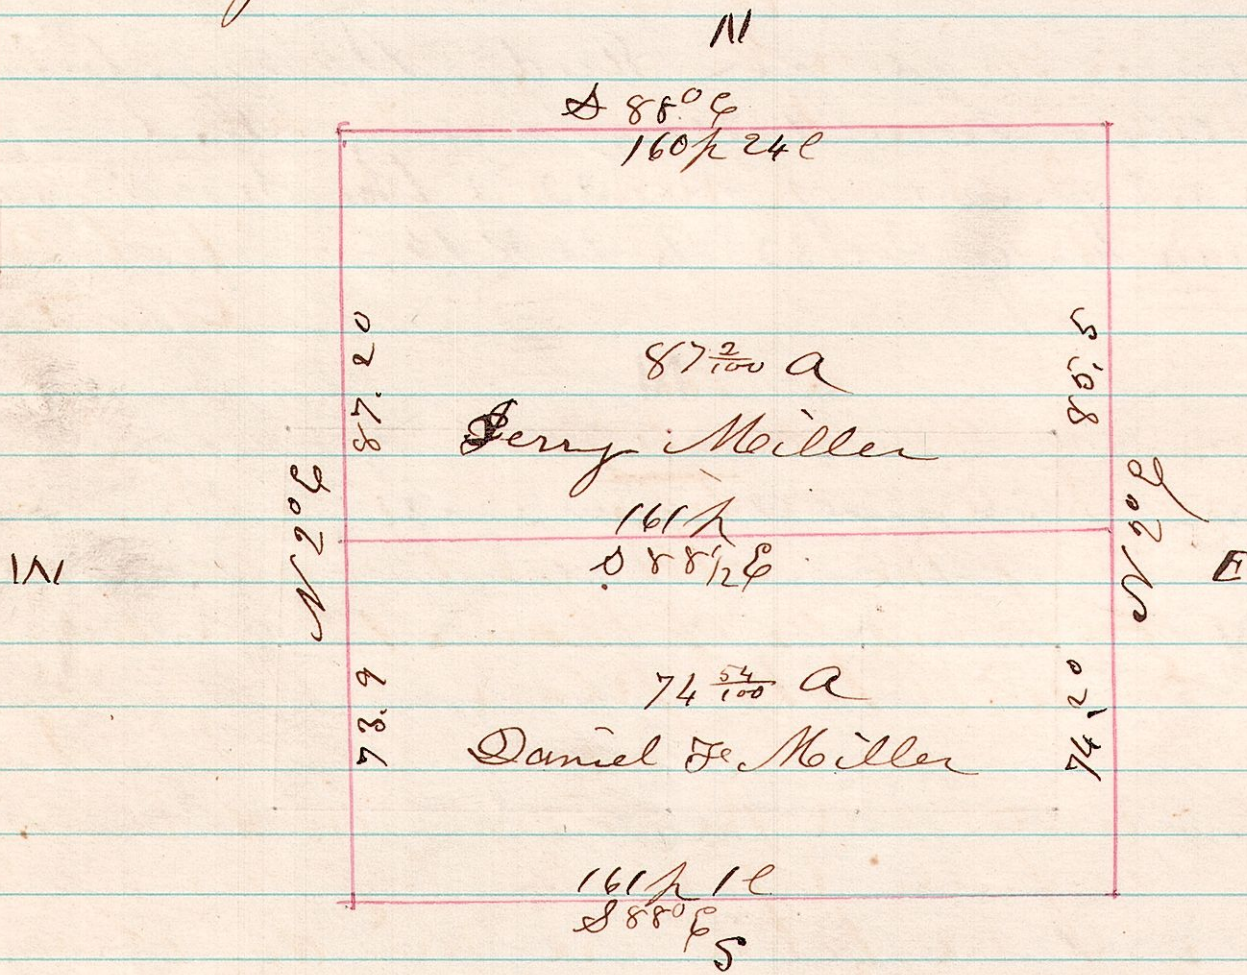 N
S 88° E
160p 24l
87.20
85,5
87 2/100 A
Jerry Miller
N 2° E
N 2° E
161p
S 88 1/2 E
W
E
73.9
74,20
74 54/100 A
Daniel F Miller
161p 1l
S 88° E
S